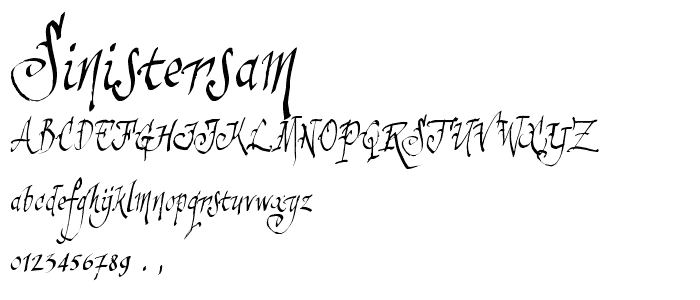 Sinistersam
ABCDEFGHIJKLMNOPQRSTUVWXYZ
abcdefghijklmnopqrstuvwxyz
0123456789 . ,